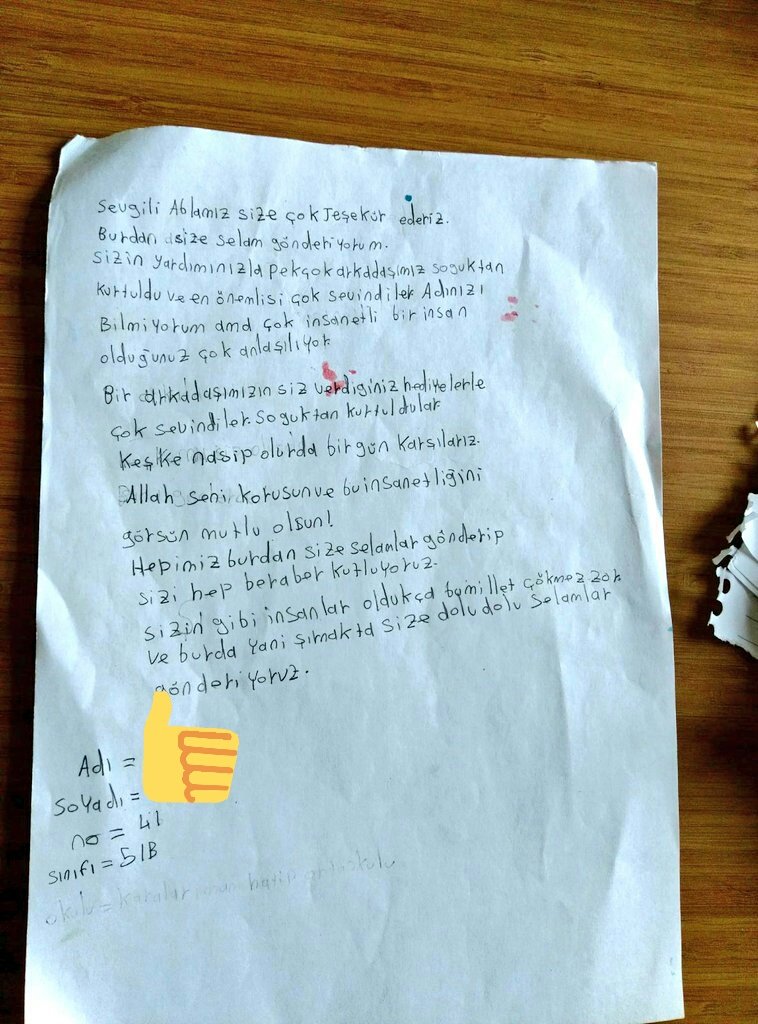 Sevgili Ablamız size çok Teşekür ederiz.
Burdan size selam gönderiyorum.
Sizin yardımınızla pekçok arkadaşımız soguktan
kurtuldu ve en önemlisi çok sevindiler Adınızı
Bilmiyorum ama çok insanetli bir insan
olduğunuz çok anlaşılıyor
Bir arkadaşımızın siz verdiginiz hediyelerle
çok sevindiler. Soguktan kurtuldular
Keşke nasip olurda bir gün Karşılarız.
Allah seni korusun ve bu insanetliğini
görsün mutlu olsun!
Hepimiz burdan size selamlar gönderip
sizi hep beraber kutluyoruz.
sizin gibi insanlar oldukça bu millet çökmez zor
ve burda yani şırnakta size dolu dolu selamlar
gönderiyoruz.
Adı =
Soyadı =
no = 41
sınıfı = 5/B
okulu = imam hatip ortaokulu